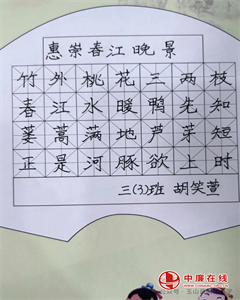 惠崇春江晚景
竹外桃花三两枝
春江水暖鸭先知
蒌蒿满地芦芽短
正是河豚欲上时
三(3)班 胡笑萱
中廉在线